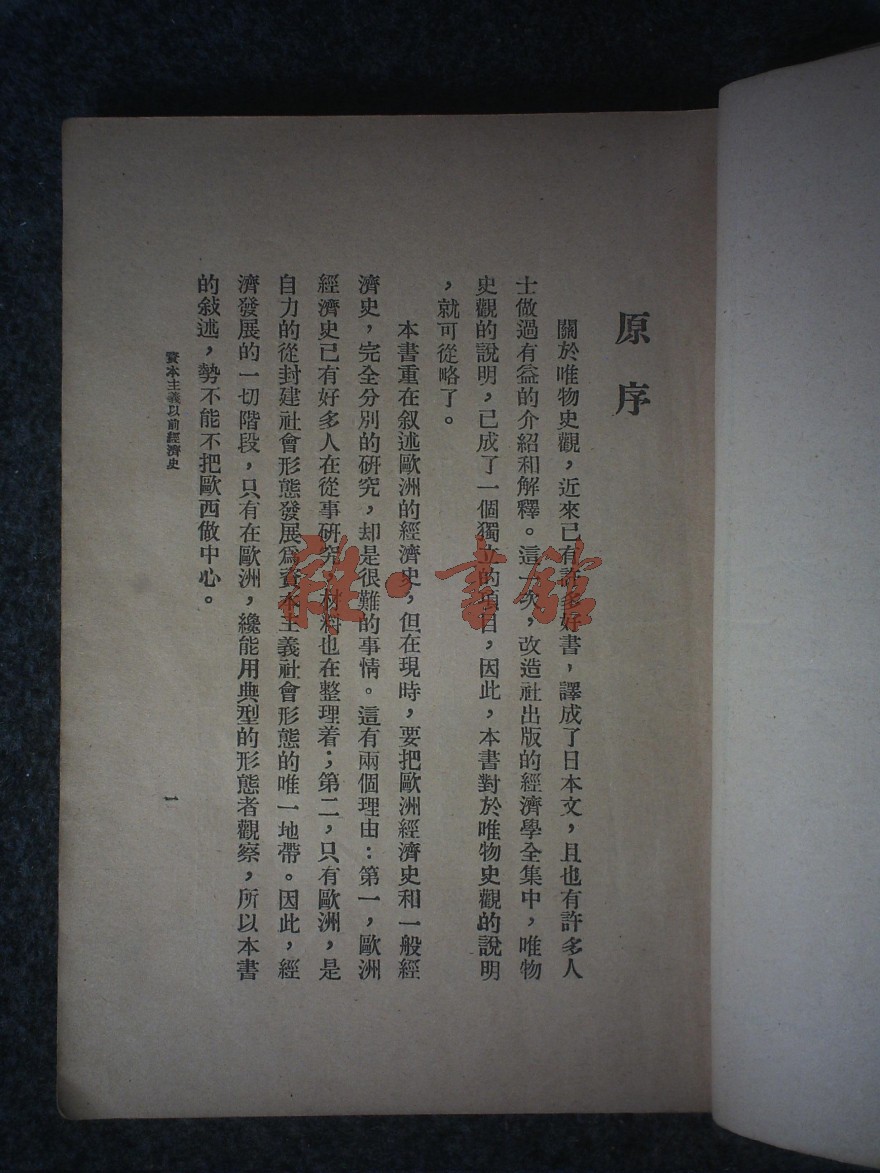 原序
關於唯物史觀，近來已有許多好書，譯成了日本文，且也有許多人
士做過有益的介紹和解釋。這一次，改造社出版的經濟學全集中，唯物
史觀的說明，已成了一個獨立的項目，因此，本書對於唯物史觀的說明
，就可從略了。
本書重在叙述歐洲的經濟史，但在現時，要把歐洲經濟史和一般經
濟史，完全分別的研究，却是很難的事情。這有兩個理由：第一，歐洲
經濟史已有好多人在從事研究，材料也在整理着；第二，只有歐洲，是
自力的從封建社會形態發展爲資本主義社會形態的唯一地帶。因此，經
濟發展的一切階段，只有在歐洲，纔能用典型的形態者觀察，所以本書
的敍述，勢不能不把歐西做中心。
資本主義以前經濟史
一
雜·書館